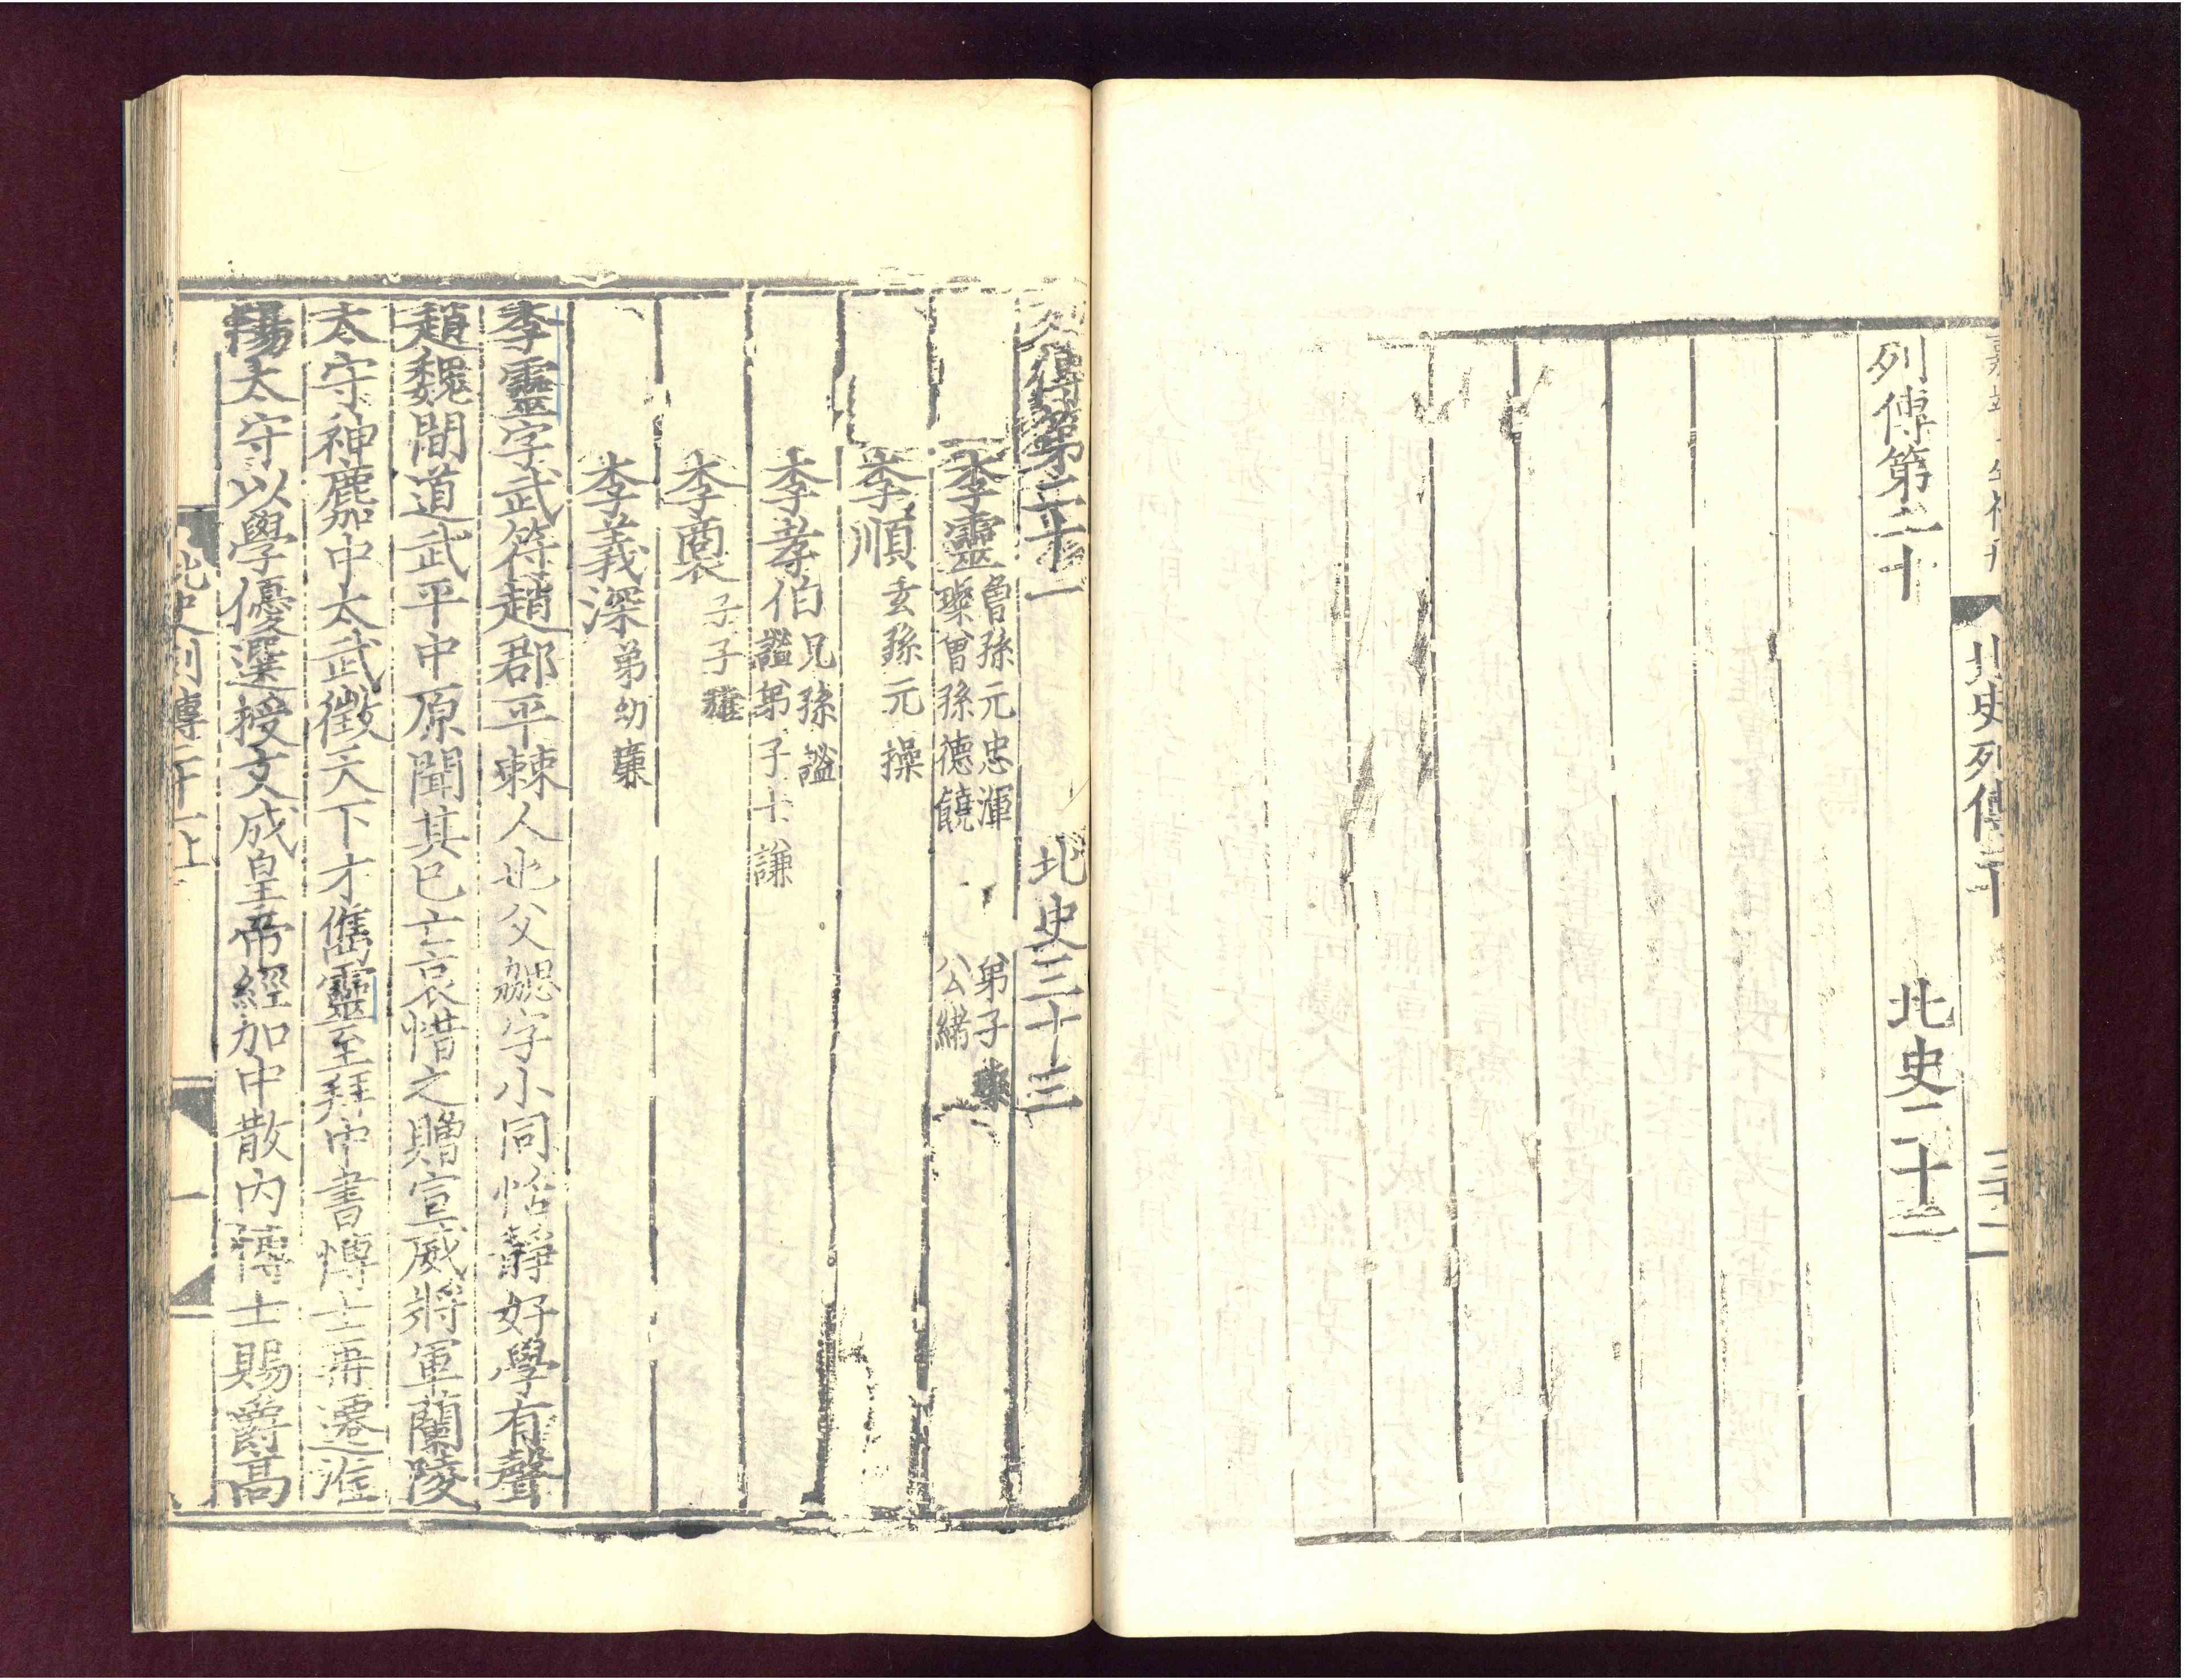 北史列傳二十
列傳第二十　北史三十二
列傳第二十一　北史三十三
李靈 曾孫元忠　渾　弟子璨
璨曾孫德饒　公緒
李順 玄孫元操
李孝伯 兄孫謐
謐弟子士謙
李裔 子子雄
李義深 弟幼廉
李靈字武符趙郡平棘人也父勰字小同恬靜好學有聲
趙魏間道武平中原聞其已亡哀惜之贈宣威將軍蘭陵
太守神䴥中太武徵天下才儁靈至拜中書博士再遷淮
陽太守以學優選授文成皇帝經加中散內博士賜爵高
北史列傳二十一上
一